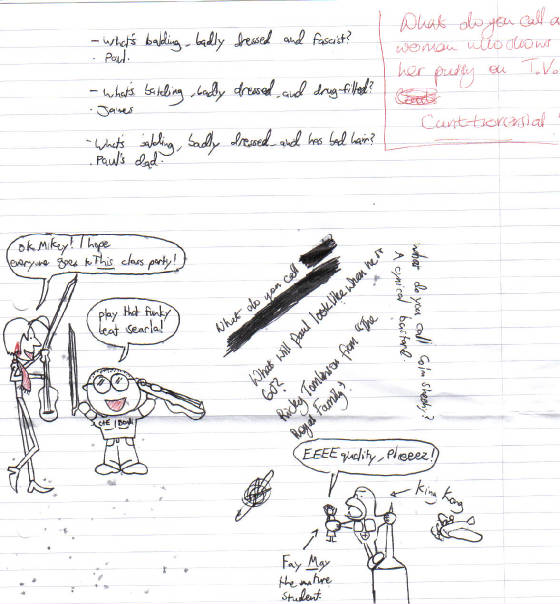 - What's balding, badly dressed and fascist?
. Paul.
- What's balding, badly dressed and drug-filled?
. James
- What's balding, badly dressed and has bad hair?
. Paul's dad.
What do you call a
woman who shows
her pussy on T.V.
Cunt-troversial
OK Mikey! I hope
everyone goes to This class party!
play that funky
beat Searla!
What do you call
What will Paul look like when he is
60?
Ricky Tomlinson from "The
Royal Family"
What do you call Colm Sheehy?
A cynical bastard.
EEEEquality, Pleeeez!
King Kong
Fay May
the mature
student.